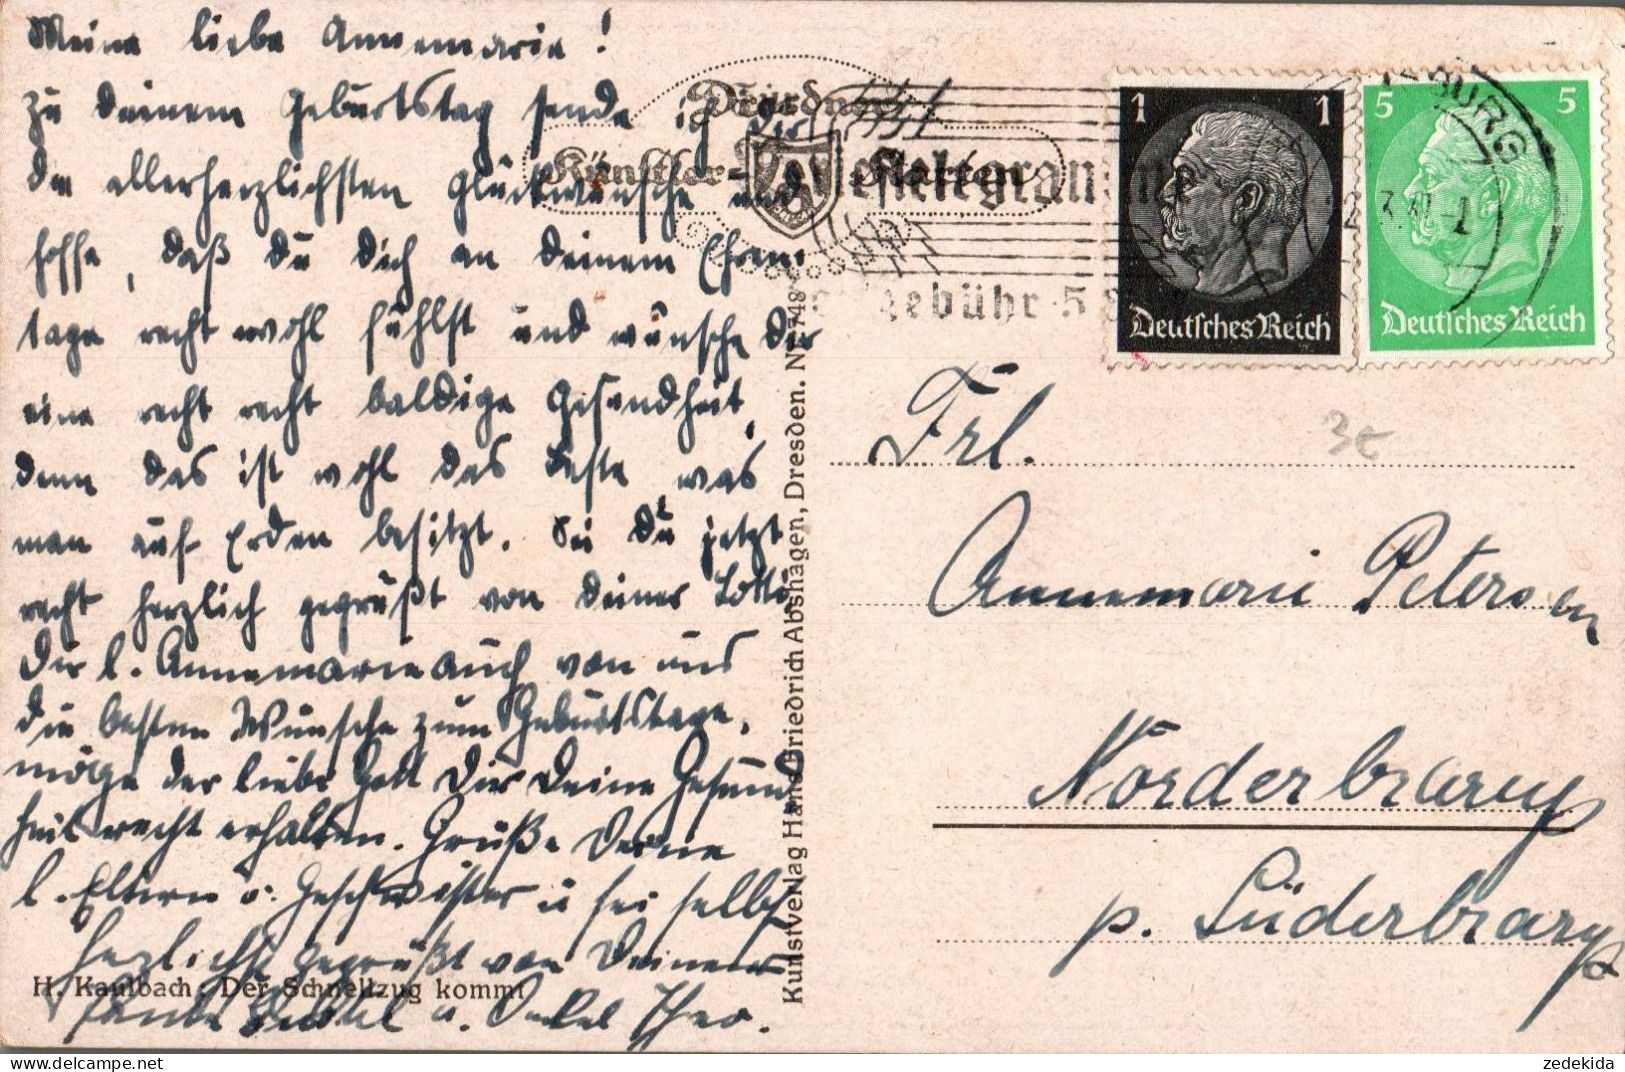 Meine liebe Annemarie!
Zu Deinem Geburtstag sende ich Dir
die allerherzlichsten Glückwünsche und
hoffe, daß Du Dich an Deinem Ehren-
tage recht wohl fühlst und wünsche Dir
eine recht recht baldige Gesundheit,
denn das ist wohl das Beste was
man auf Erden besitzt. Sei Du jetzt
recht herzlich gegrüßt von Deiner Lotti
Dir l. Annemarie auch von uns
die besten Wünsche zum Geburtstage,
möge der liebe Gott Dir Deine Gesund
heit recht erhalten. Grüße Deine
l. Eltern u. Geschwister u sei selbst
herzlichst gegrüßt von Deiner
Tante u. Onkel Theo.
H. Kaulbach: Der Schnellzug kommt
Dresdner
Künstler-Karten
Kunstverlag Hans Friedrich Abshagen, Dresden. Nr. 748
gebühr 5
BURG
1 1
Deutsches Reich
5 5
Deutsches Reich
3€
Frl.
Annemarie Petersen
Norderbrarup
p. Süderbrarup
zedekida